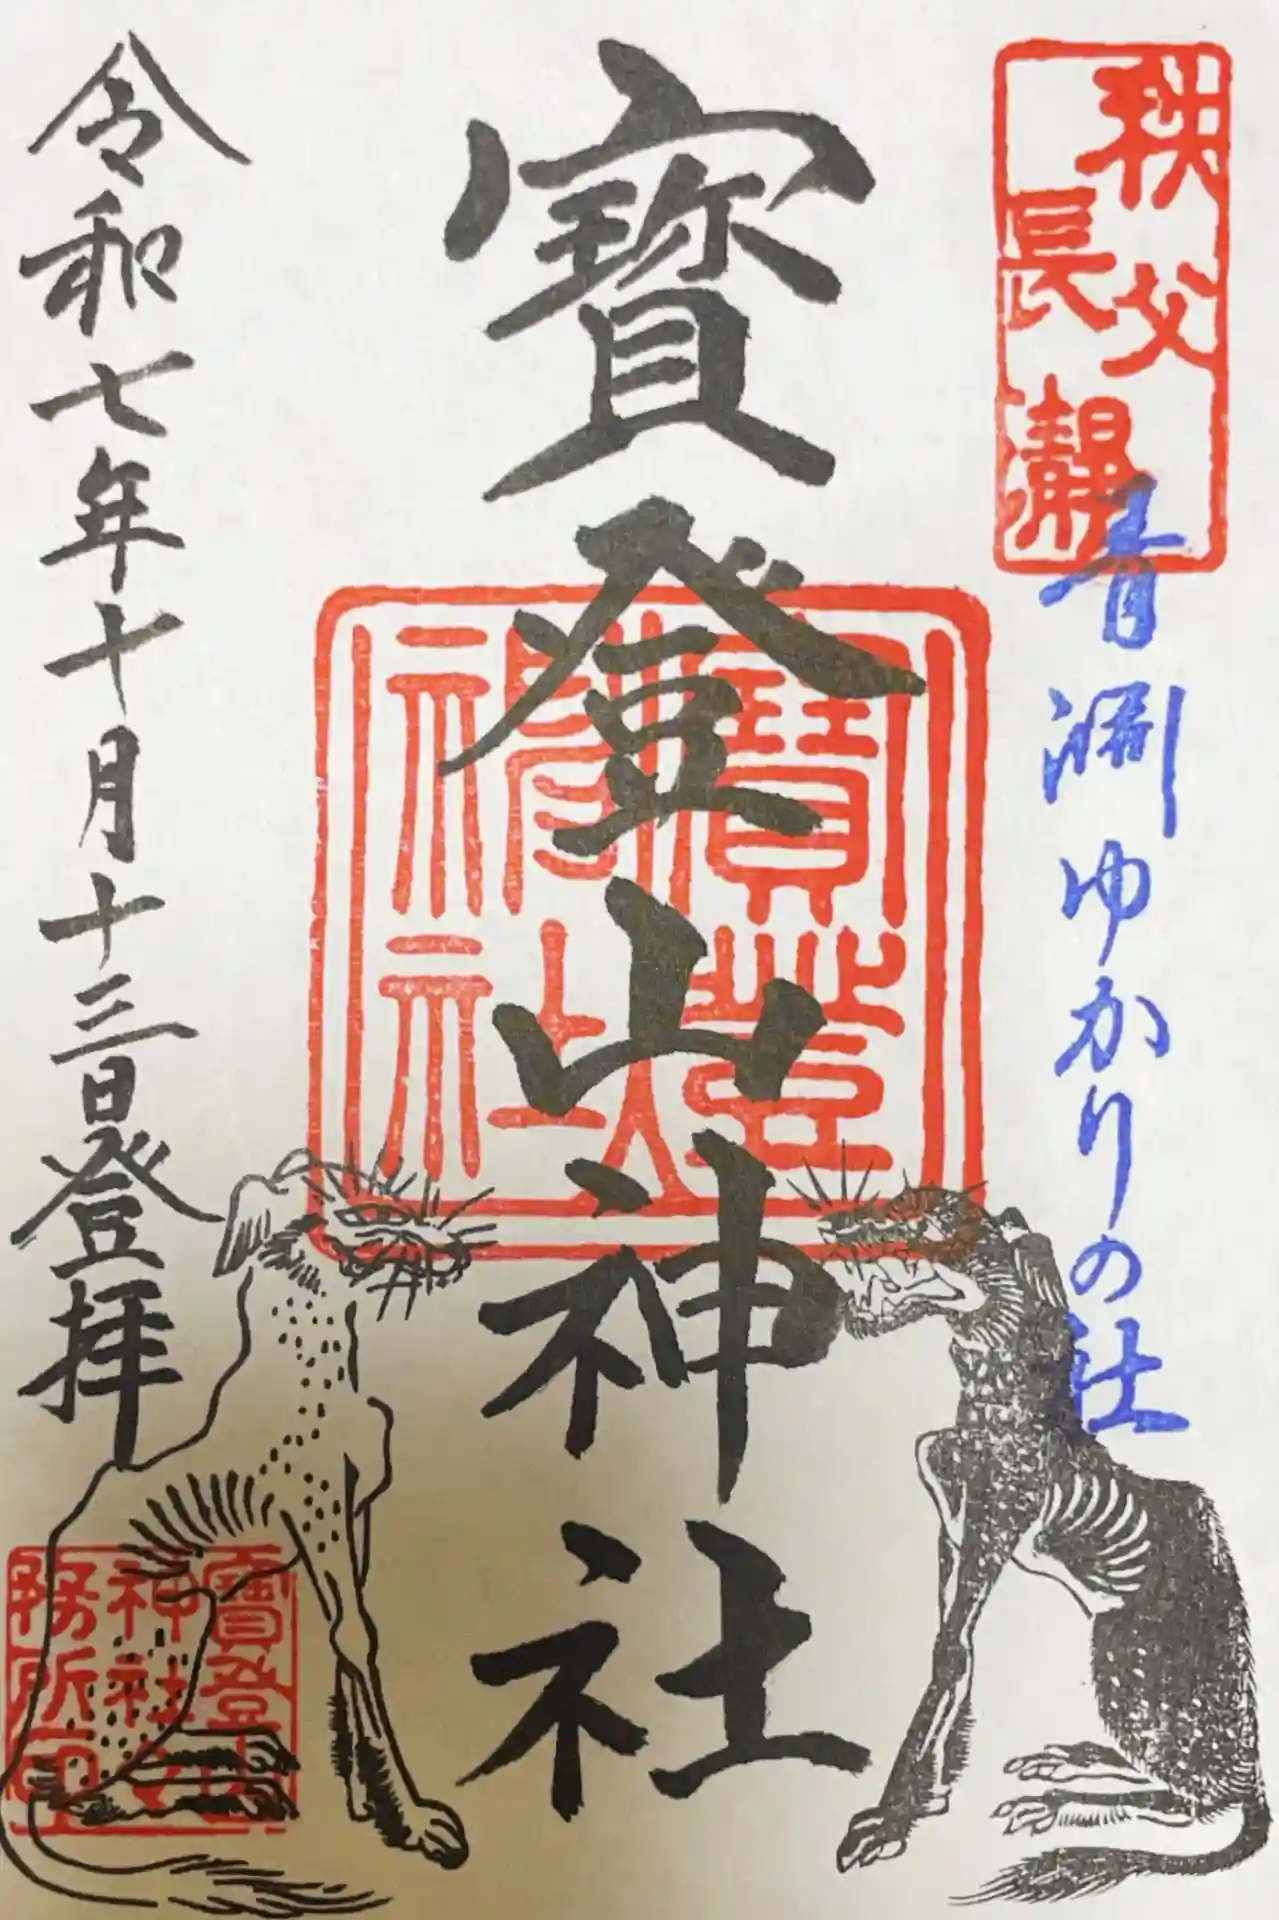 秩父
長瀞
青淵ゆかりの社
寳登山神社
寳登
山神社
令和七年十月十三日登拝
寳登山
神社
務所印